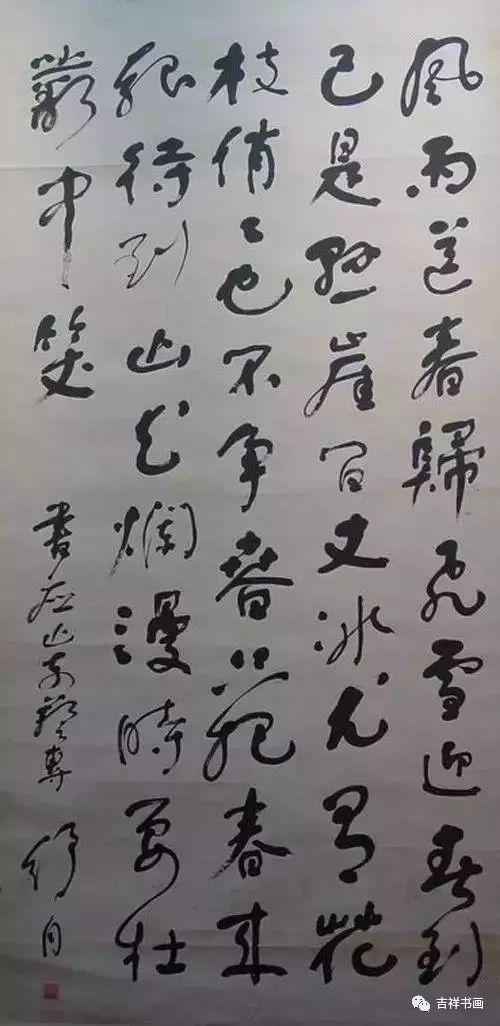 風雨送春歸飛雪迎春到
已是懸崖百丈冰尤有花
枝俏々也不争春只把春来
報待到山花爛漫時在
叢中笑
書應山东警專
舒同
吉祥书画